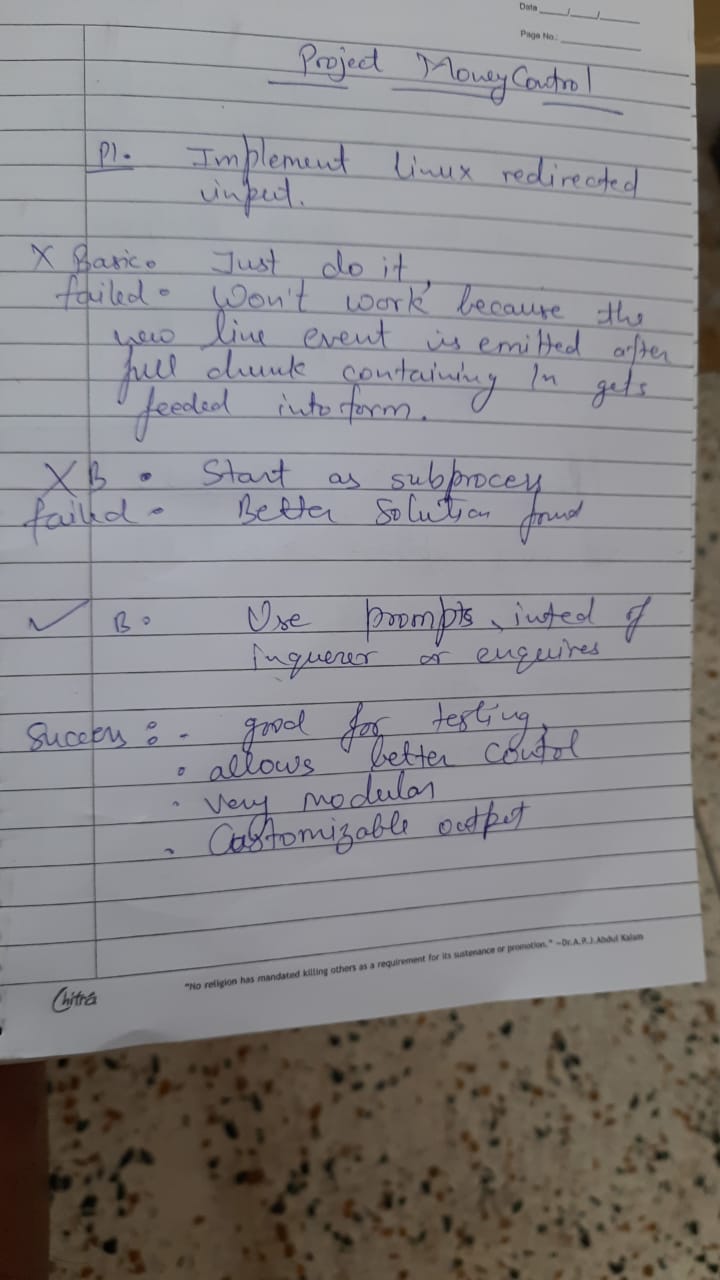 Date ___/___/___
Page No.: ________
Project MoneyControl
P1. Implement linux redirected
input.
X Basic. Just do it,
failed. Won't work because the
new line event is emitted after
full chunk containing \n gets
feeded into form.
X B. Start as subprocess
failed. Better Solution found
✓ B. Use prompts, insted of
inquerer or enquires
Success: - good for testing,
• allows better control
• Very modular
• Customizable output
"No religion has mandated killing others as a requirement for its sustenance or promotion." -Dr.A.P.J.Abdul Kalam
Chitra